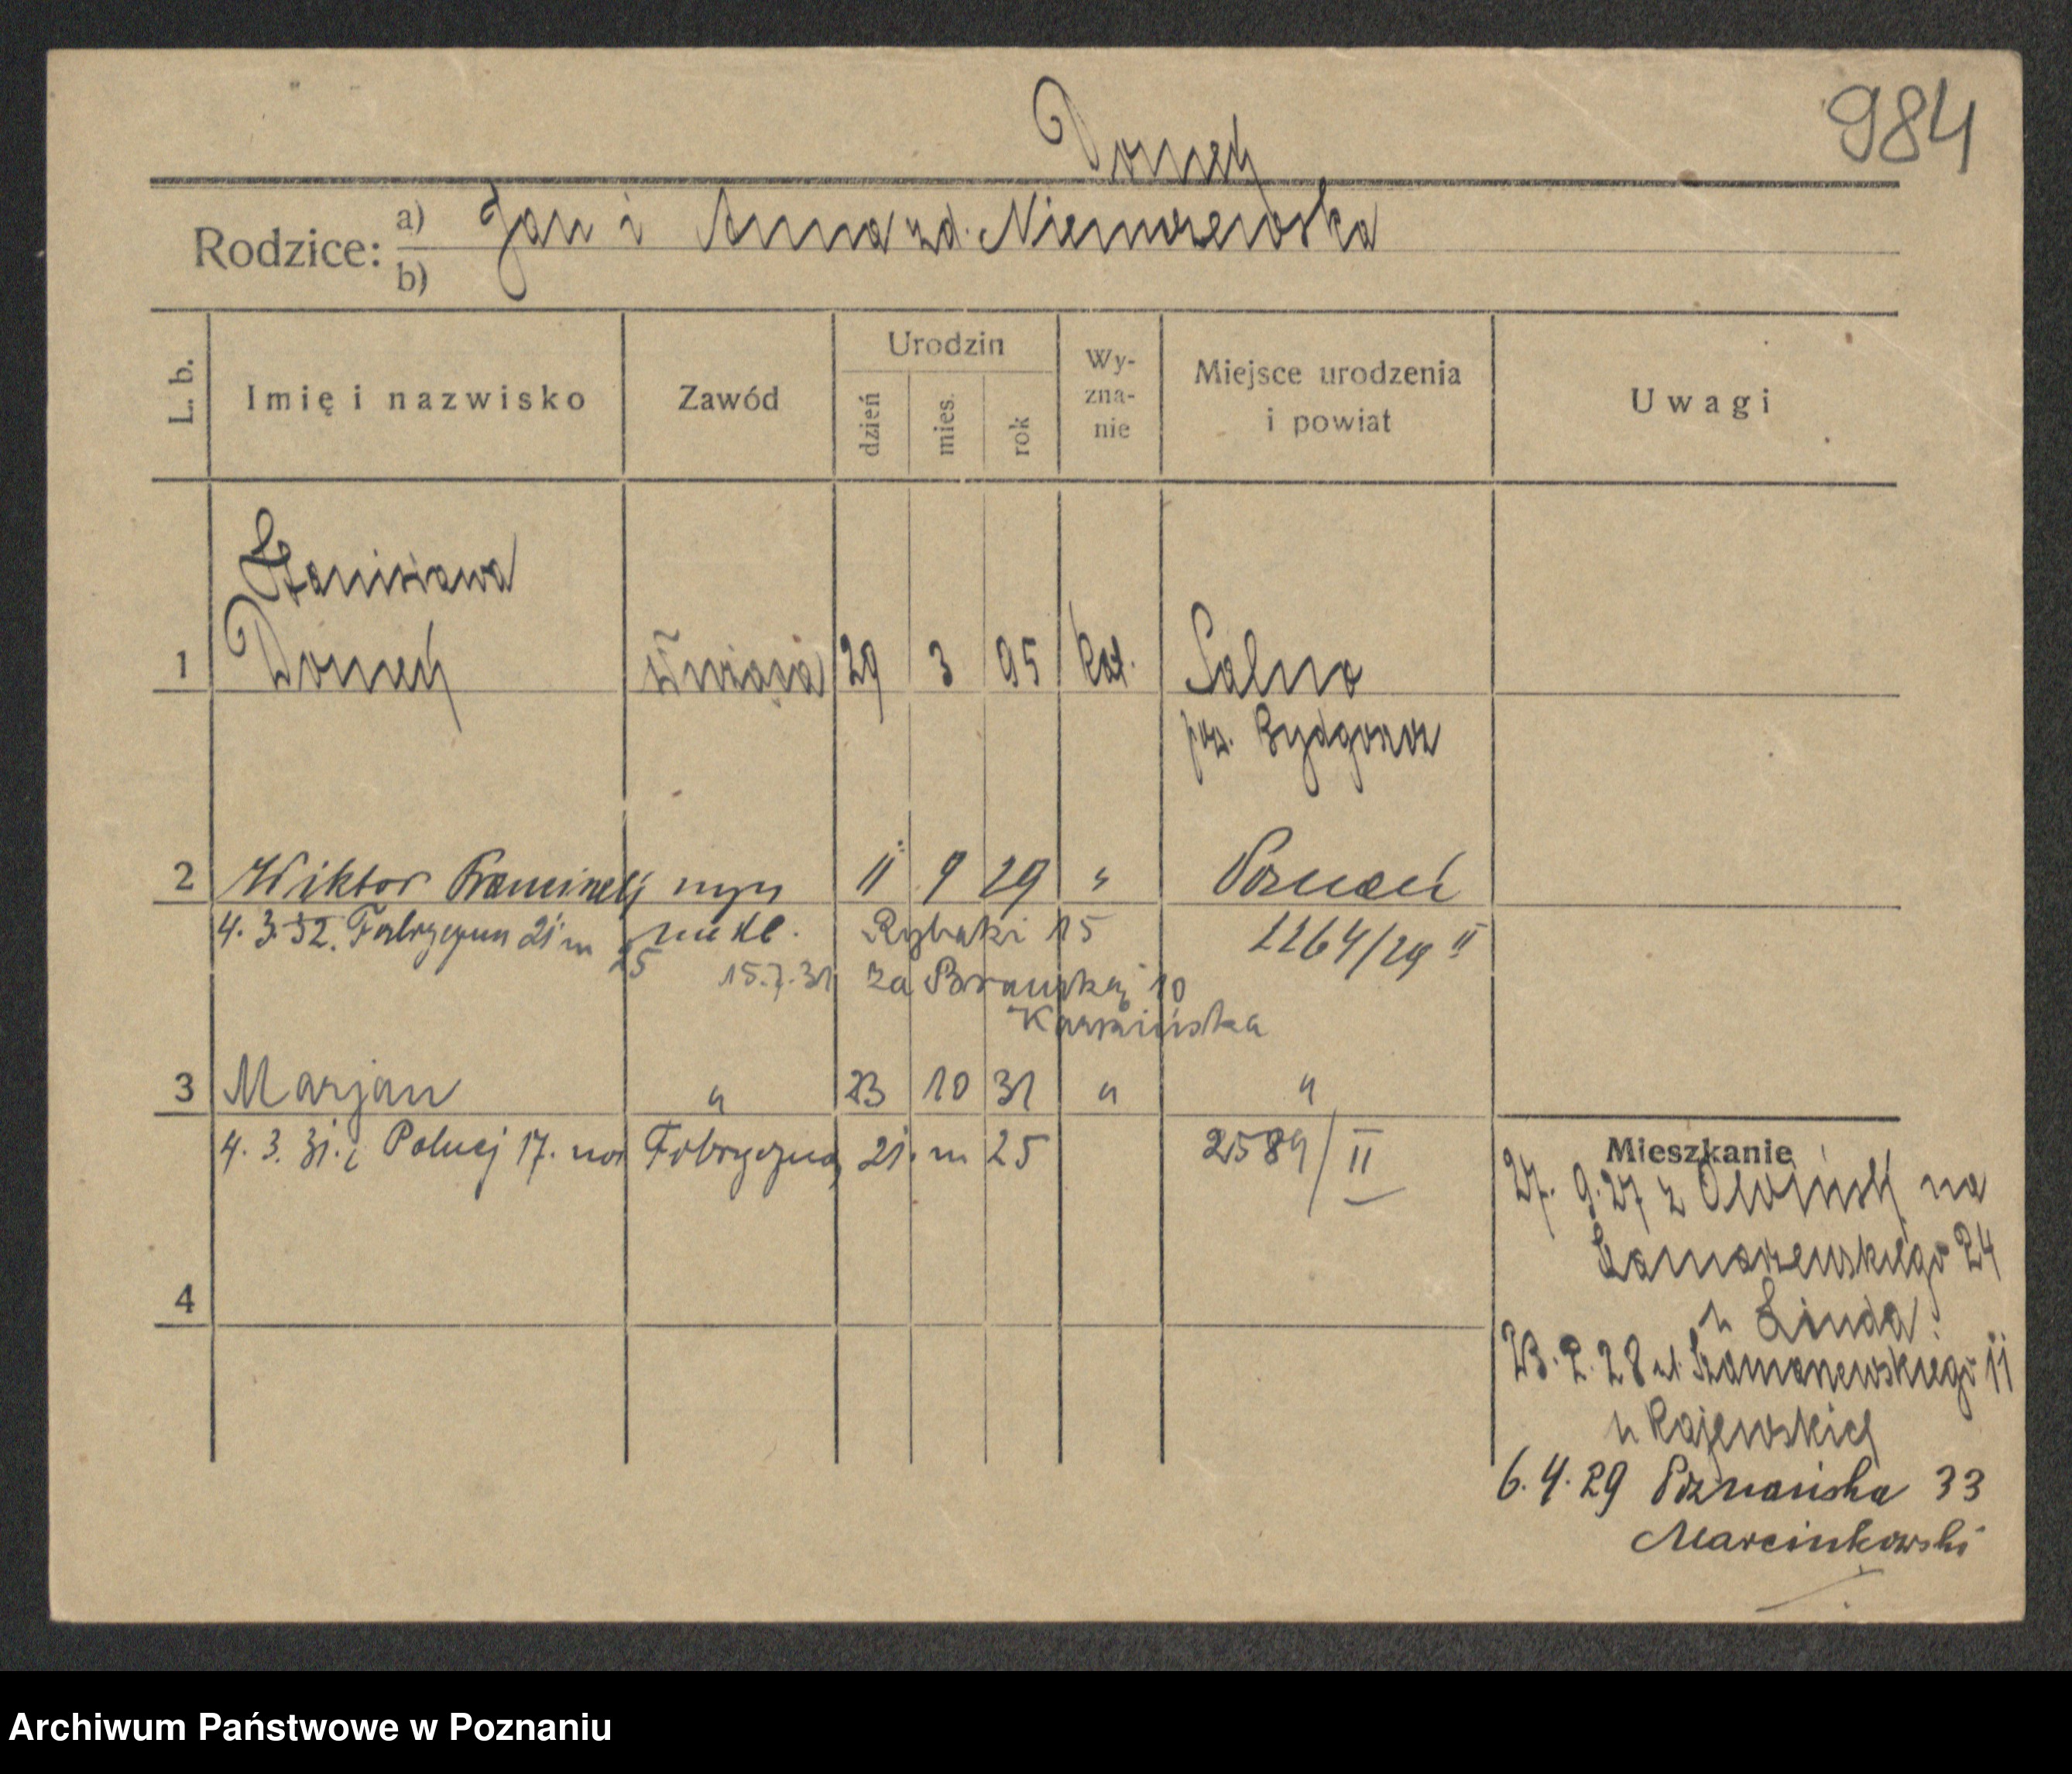 984
Domek
Rodzice: a) Jan i Anna zd. Niemczewska
b)
L. b.
Imię i nazwisko
Zawód
Urodzin
dzień
mies.
rok
Wy-
zna-
nie
Miejsce urodzenia
i powiat
Uwagi
Stanisława
1 Domek 29 3 95 kat. Salno
pow. Bydgoszcz
2 Wiktor Franciszek syn 11 9 29 " Poznań
4. 3. 32. Fabryczna 21 m 25 nieśl. Rybaki 15 2264/29 II
15.7.31 za Bramką 10
Karmińska
3 Marjan " 23 10 31 " "
4. 3. 31. z Polnej 17. na Fabryczną 21. m 25 2589/II
4
Mieszkanie
27. 9. 27 z Owińsk na
Szamarzewskiego 24
u Linda
23. 2. 28 ul. Szamarzewskiego 11
u Rajewskich
6. 4. 29 Poznańska 33
Marcinkowski
Archiwum Państwowe w Poznaniu